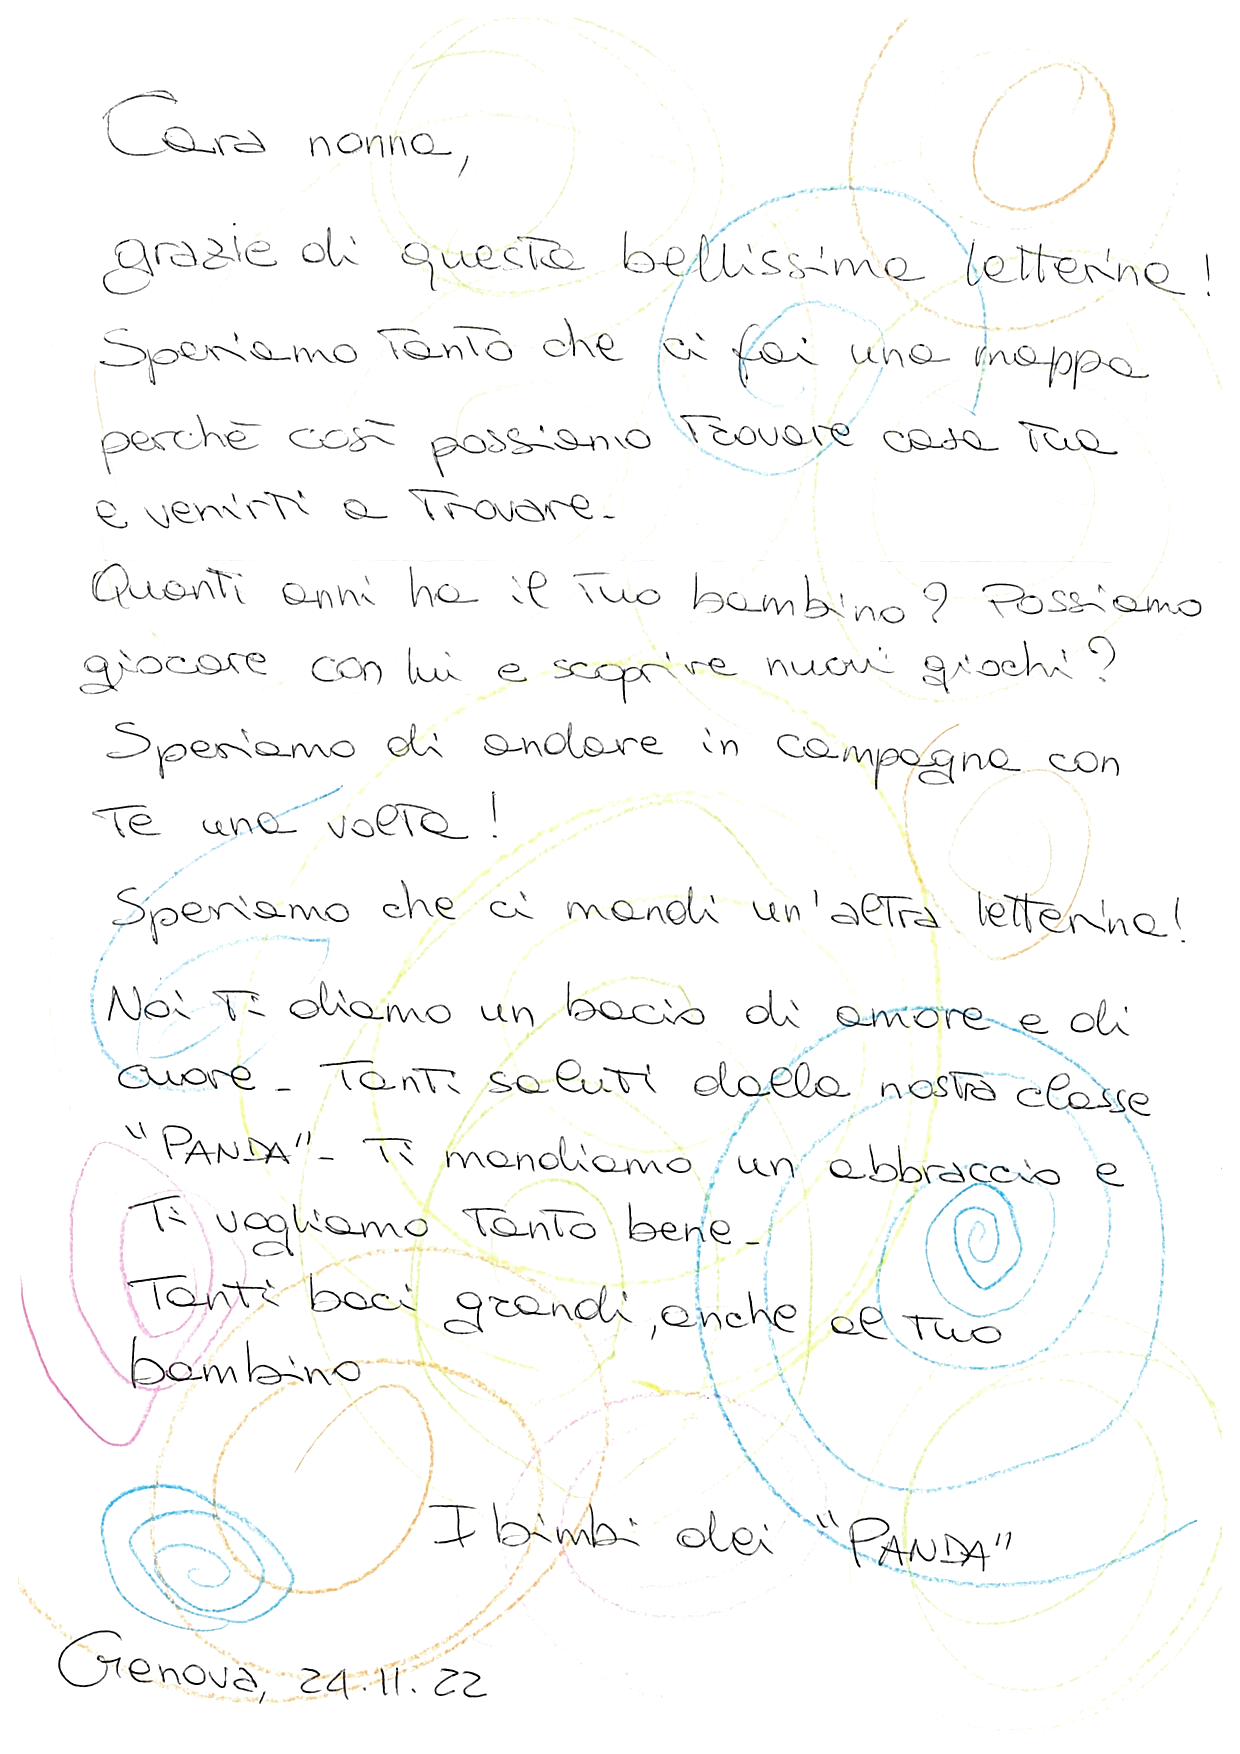 Cara nonna,
grazie di questa bellissima letterina!
Speriamo tanto che ci fai una mappa
perchè così possiamo trovare casa tua
e venirti a trovare.
Quanti anni ha il tuo bambino? Possiamo
giocare con lui e scoprire nuovi giochi?
Speriamo di andare in campagna con
te una volta!
Speriamo che ci mandi un'altra letterina!
Noi ti diamo un bacio di amore e di
cuore. Tanti saluti dalla nostra classe
"PANDA". Ti mandiamo un abbraccio e
ti vogliamo tanto bene.
Tanti baci grandi, anche al tuo
bambino
I bimbi dei "PANDA"
Genova, 24.11.22